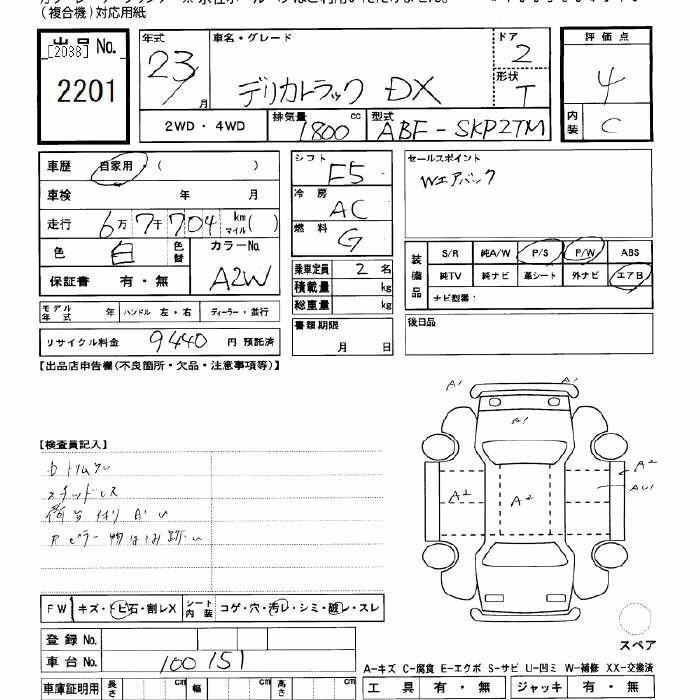 (複合機)対応用紙
出品 No.
[2038]
2201
年式 車名・グレード ドア 評価点
23 月 デリカトラック DX 2 4
形状 T
2WD・4WD 排気量 1800 cc 型式 ABF-SKP2TM 内装 C
車歴 自家用 ( )
車検 年 月
走行 6万7千704 km マイル( )
色 白 色替 カラーNo. A2W
保証書 有・無
モデル年式 年 ハンドル 左・右 ディーラー・並行
リサイクル料金 9440 円 預託済
シフト F5
冷房 AC
燃料 G
乗車定員 2 名
積載量 kg
総重量 kg
書類期限
月 日
セールスポイント
Wエアバック
装備品 S/R 純A/W P/S P/W ABS
純TV 純ナビ 革シート 外ナビ エアB
ナビ型番:
後日品
【出品店申告欄(不良箇所・欠品・注意事項等)】
【検査員記入】
スタッドレス
A1 A1
A1
A2 A2 A2
AU1
FW キズ・トビ石・割レX シート内装 コゲ・穴・汚レ・シミ・破レ・スレ
登録 No.
車台 No. 100151
車庫証明用 長さ cm 幅 cm 高さ cm
スペア
A-キズ C-腐食 E-エクボ S-サビ U-凹ミ W-補修 XX-交換済
工具 有・無 ジャッキ 有・無